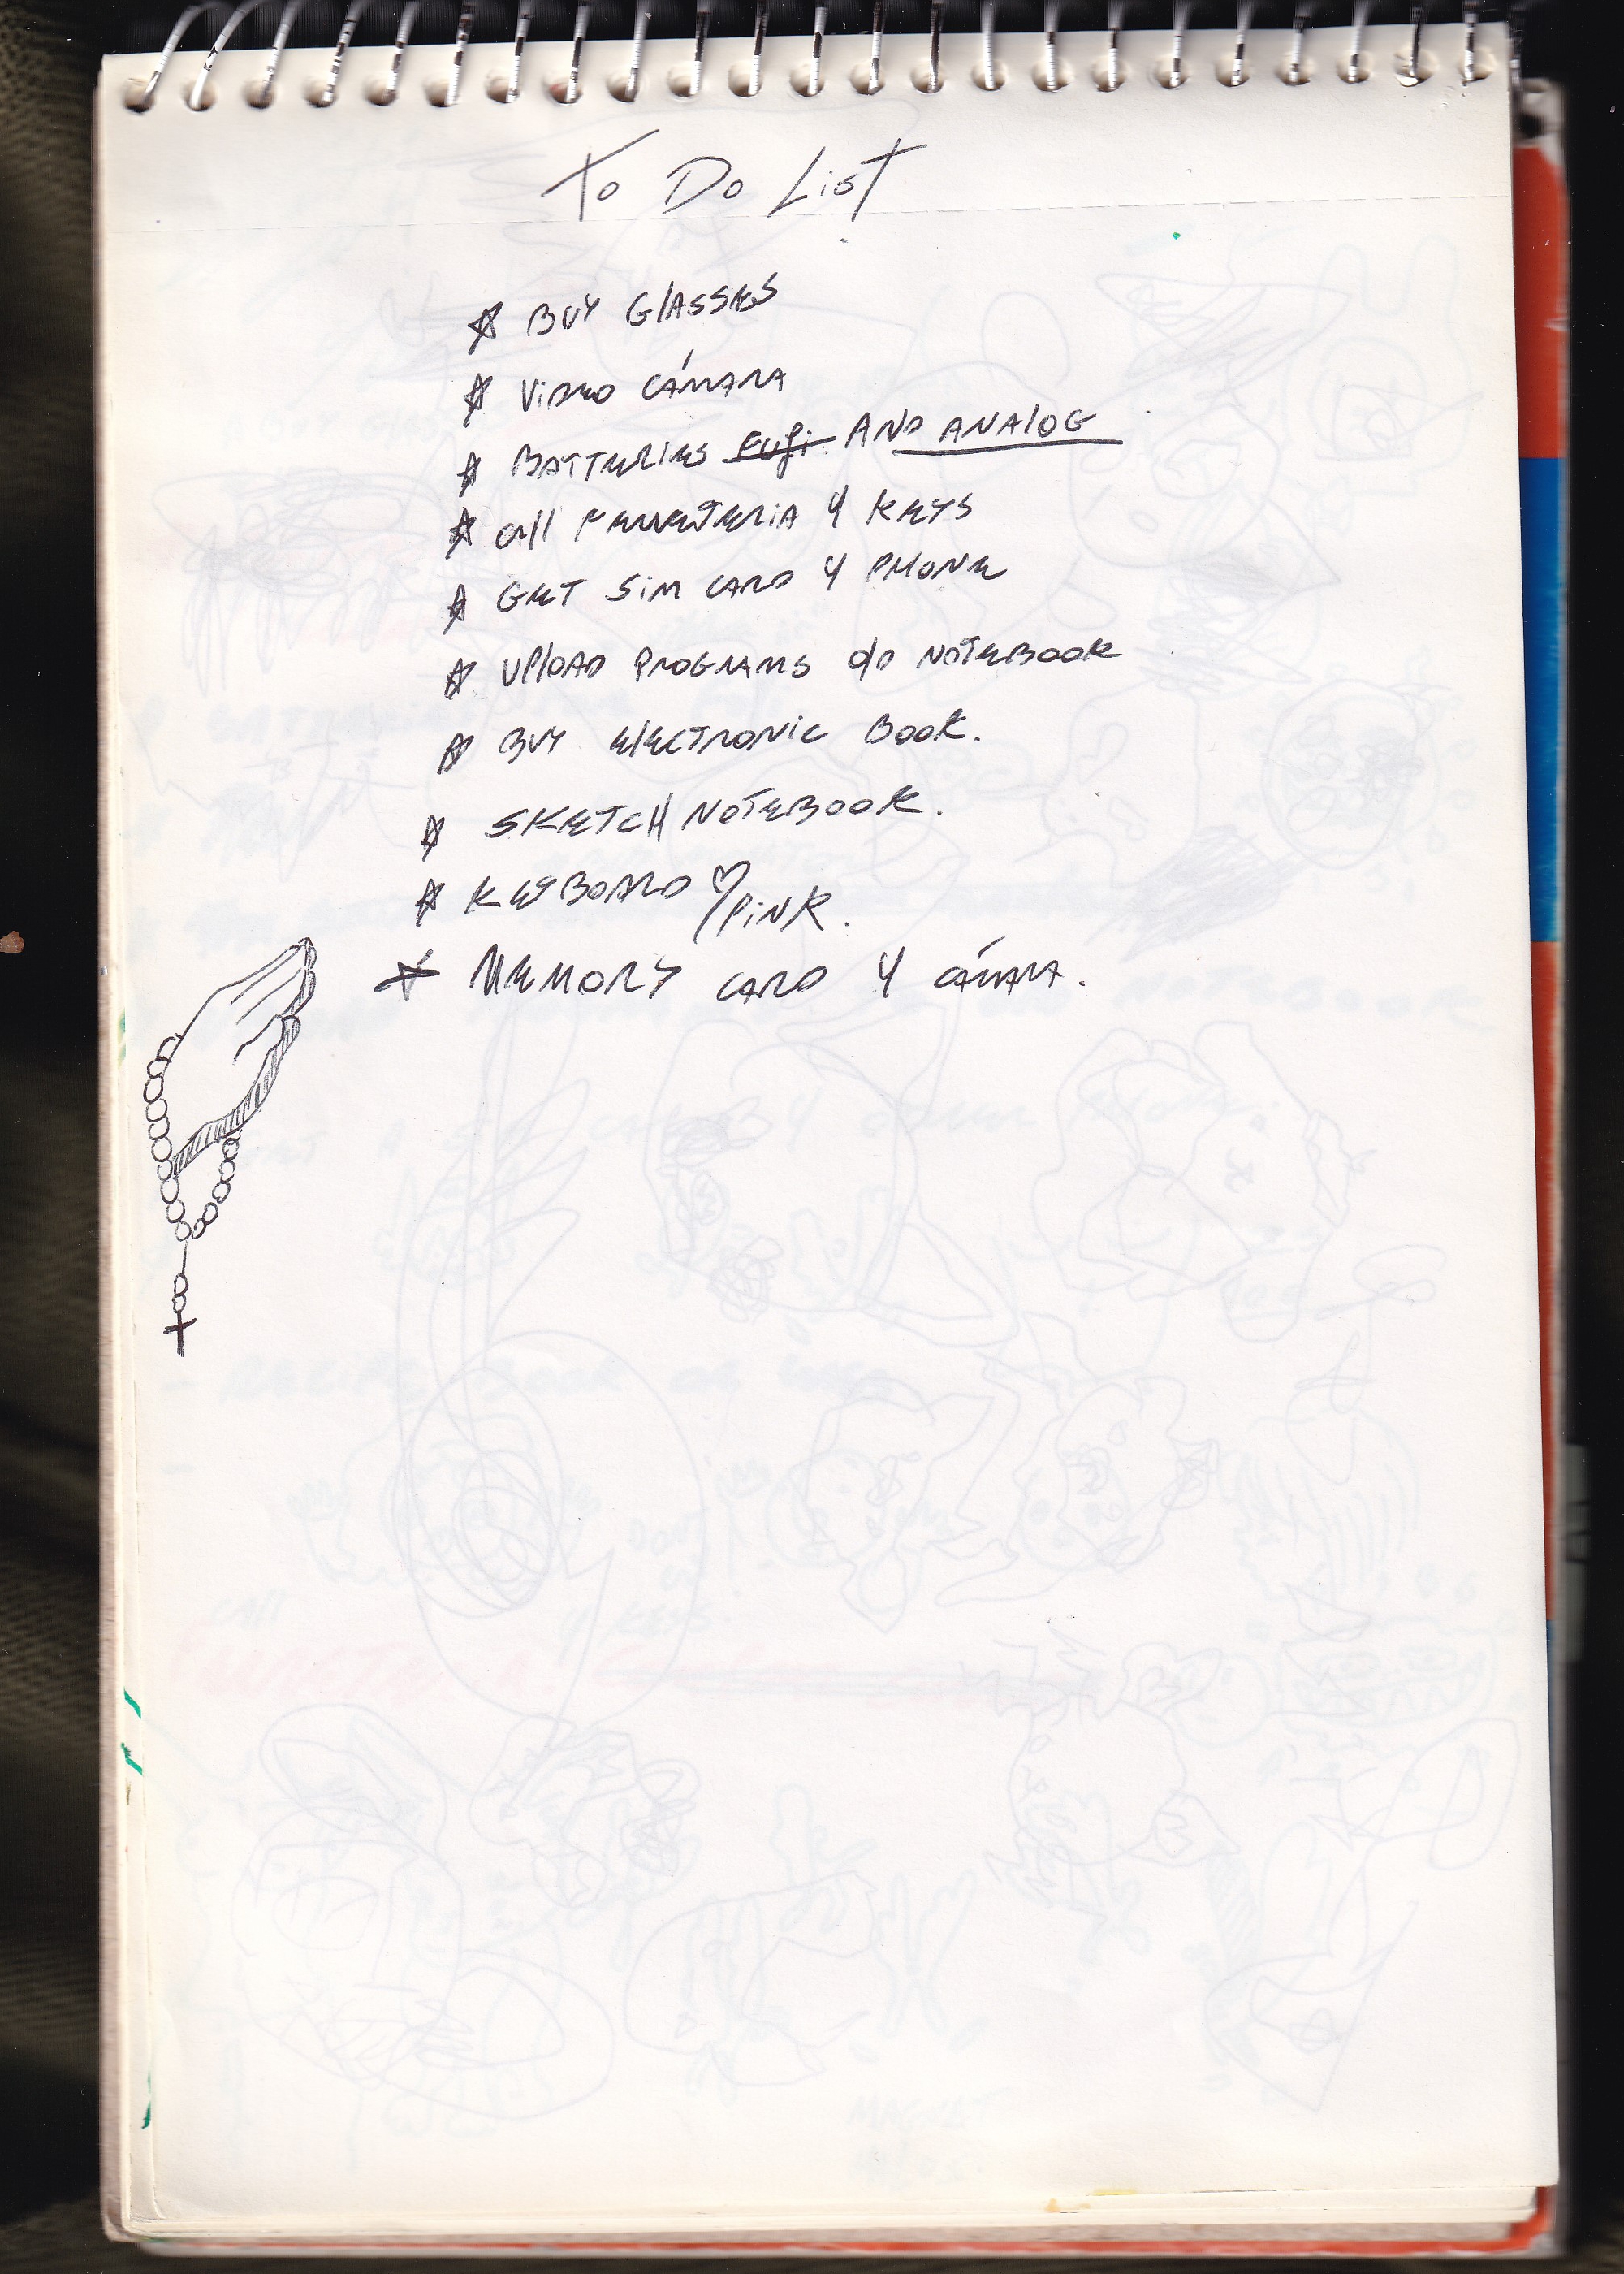 To Do List
BUY GlASSES
ViDEO CÁMARA
BATTERIES Fuji AND ANAlOG
CAll Y KEYS
GET SiM CARD Y PHONE
UPlOAD PROGRAMS NOTEBOOK
BUY ElECTRONiC BOOK.
SKETCH NOTEBOOK.
KEYBOARD PiNK.
MEMORY CARD Y CÁMARA.